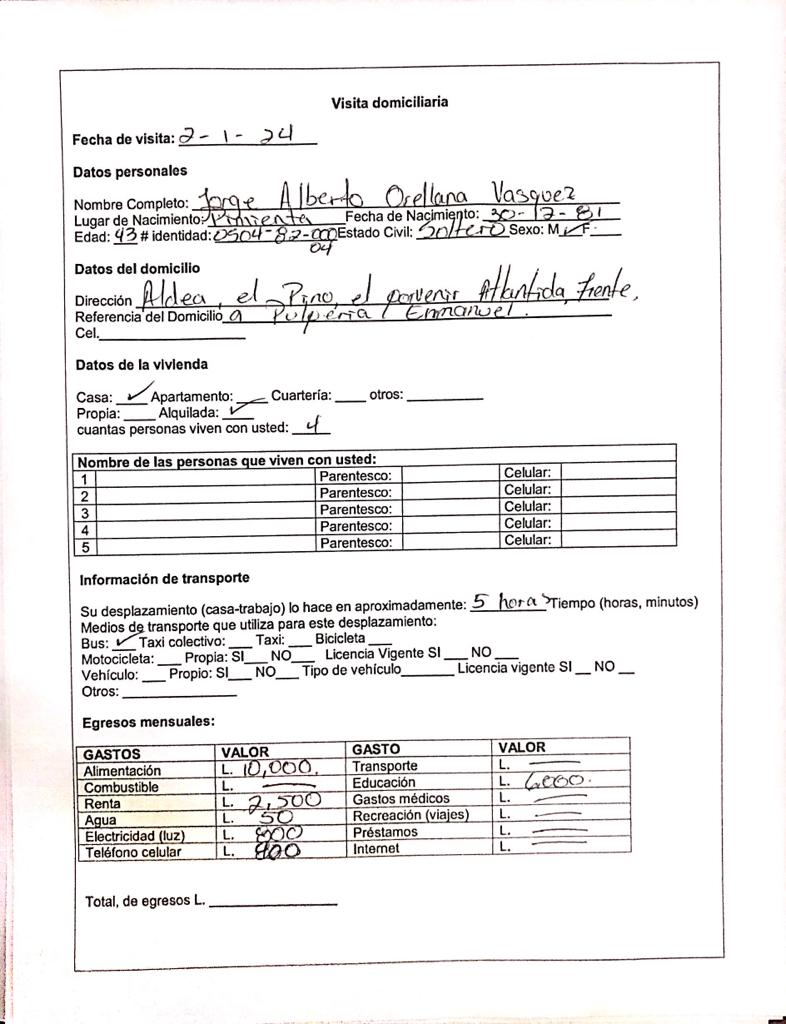 Visita domiciliaria
Fecha de visita: 2-1-24
Datos personales
Nombre Completo: Jorge Alberto Orellana Vasquez
Lugar de Nacimiento: Pimienta Fecha de Nacimiento: 30-12-81
Edad: 43 # identidad: 0504-82-000 Estado Civil: Soltero Sexo: M ✓ F
04
Datos del domicilio
Dirección Aldea, el Pino, el porvenir Atlantida, frente,
Referencia del Domicilio a Pulperia Emmanuel.
Cel.
Datos de la vivienda
Casa: ✓ Apartamento: Cuartería: ____ otros: ____
Propia: ____ Alquilada: ✓
cuantas personas viven con usted: 4
Nombre de las personas que viven con usted:
1 Parentesco: Celular:
2 Parentesco: Celular:
3 Parentesco: Celular:
4 Parentesco: Celular:
5 Parentesco: Celular:
Información de transporte
Su desplazamiento (casa-trabajo) lo hace en aproximadamente: 5 horas Tiempo (horas, minutos)
Medios de transporte que utiliza para este desplazamiento:
Bus: ✓ Taxi colectivo: ___ Taxi: ___ Bicicleta ___
Motocicleta: ___ Propia: SI___ NO___ Licencia Vigente SI ___ NO ___
Vehículo: ___ Propio: SI___ NO___ Tipo de vehículo______ Licencia vigente SI __ NO __
Otros: ____
Egresos mensuales:
GASTOS VALOR GASTO VALOR
Alimentación L. 10,000. Transporte L. —
Combustible L. — Educación L. 6000.
Renta L. 2,500 Gastos médicos L. —
Agua L. 50 Recreación (viajes) L. —
Electricidad (luz) L. 800 Préstamos L. —
Teléfono celular L. 400 Internet L. —
Total, de egresos L. ____